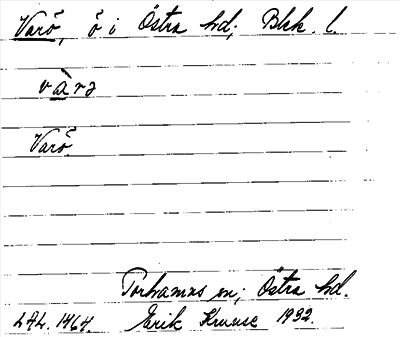 Varö, ö i Östra hd; Blek. l.
vàrə
Varö
Torhamns sn; Östra hd.
LAL. 1464. Erik Kruuse 1932.